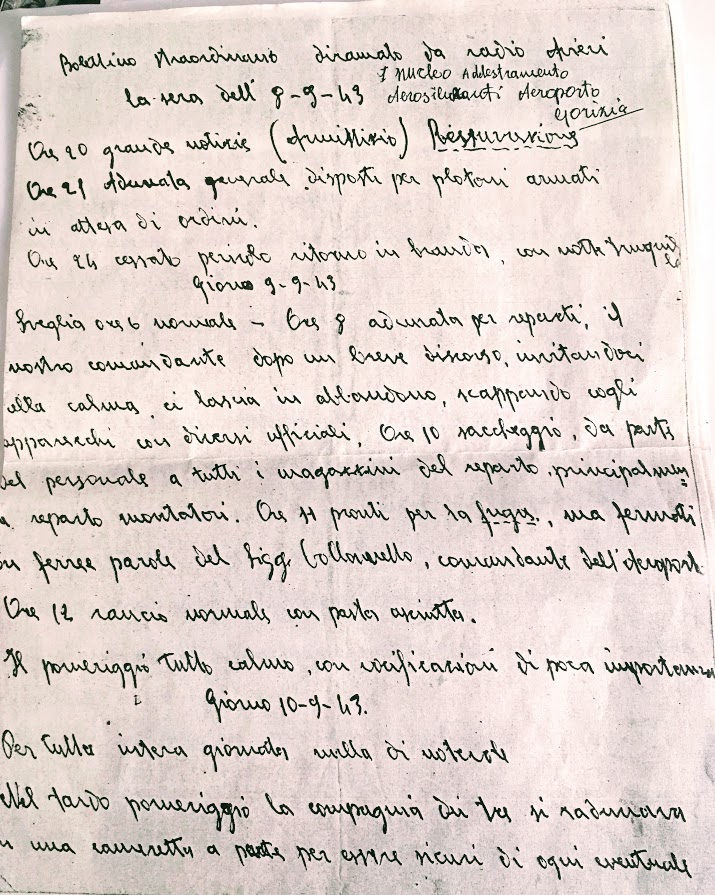 Bolettino straordinario diramato da radio Avieri
I Nucleo Addestramento
la sera dell' 8-9-43 Aerosiluranti Aeroporto
Gorizia
Ore 20 grande notizie (Armistizio)
Ore 21 Adunata generale disposti per plotoni armati
in attesa di ordini.
Ore 24 cessato pericolo ritorno in branda, con notte tranquilla
Giorno 9-9-43
Sveglia ore 6 normale - Ore 8 adunata per reparti, il
nostro comandante dopo un breve discorso, invitandoci
alla calma, ci lascia in abbandono, scappando cogli
apparecchi con diversi ufficiali, Ore 10 saccheggio, da parte
del personale a tutti i magazzini del reparto, principalmen
a reparto montatori. Ore 11 pronti per la fuga, ma fermati
ferree parole del Sigg. comandante dell'Aeroport
Ore 12 rancio normale con pasta asciutta.
Il pomeriggio tutto calmo, con vocificazioni di poca importanza
Giorno 10-9-43.
Per tutta intera giornata nulla di notevole
Nel tardo pomeriggio la compagnia dei tre si radunava
n una cameretta a parte per essere sicuri di ogni eventuale